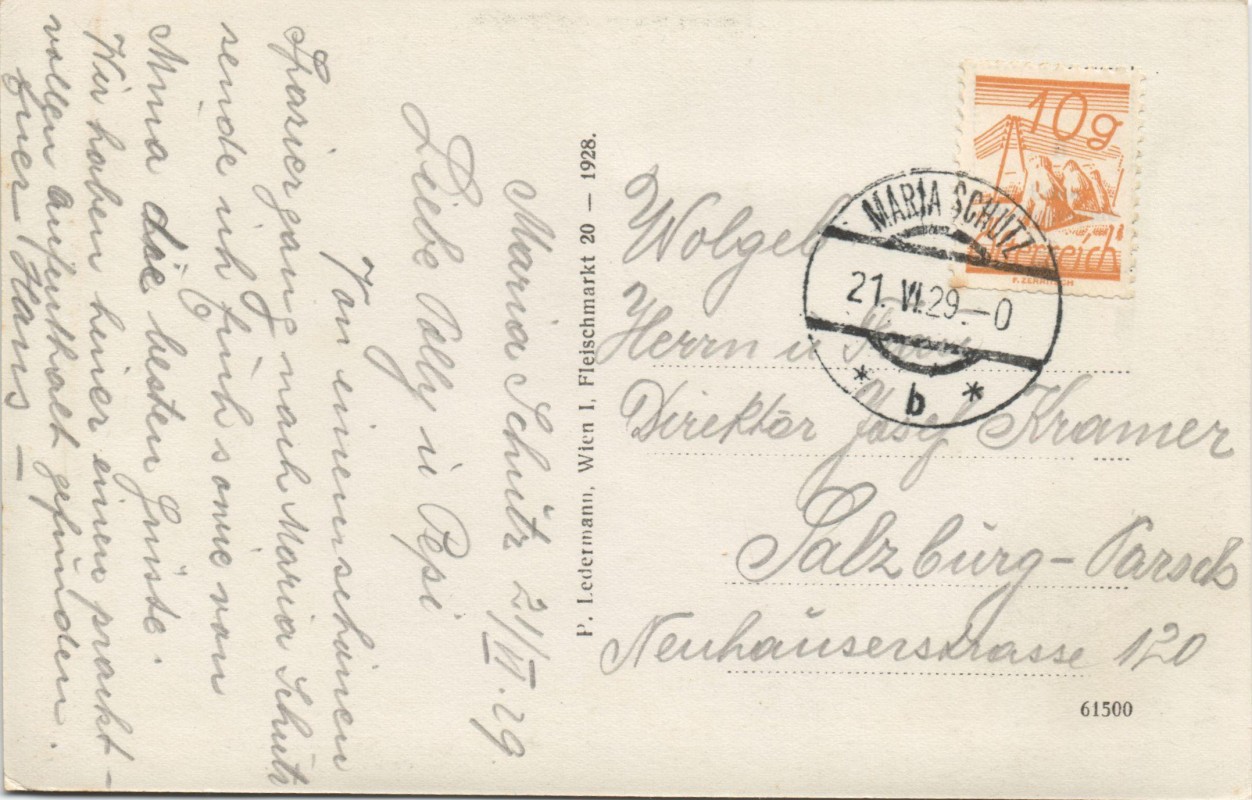 Maria Schutz 21/VI. 29
Liebe Polly u Pepi
Von einem schönen
Spaziergang nach Maria Schutz
sende ich Euch sowie von
Mina die besten Grüsse.
Wir haben hier einen prakt-
vollen Aufenthalt gefunden.
Euer Hans –
P. Ledermann, Wien I, Fleischmarkt 20 — 1928.
10g
Österreich
MARIA SCHUTZ
21. VI. 29.–0
* b *
Wolgeb
Herrn u Frau
Direktor Josef Kramer
Salzburg-Parsch
Neuhauserstrasse 120
61500